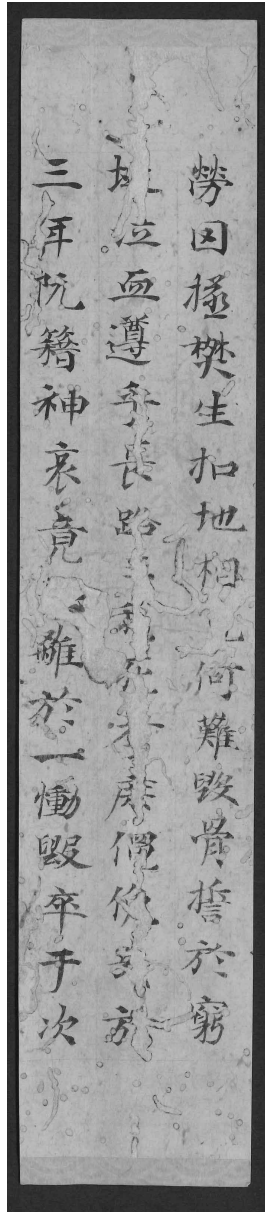 勞因極樊生扣地相何難毀骨誓於窮
泣血遵長路死於僶俛於
三年阮籍神哀竟雖於一慟毀卒于次